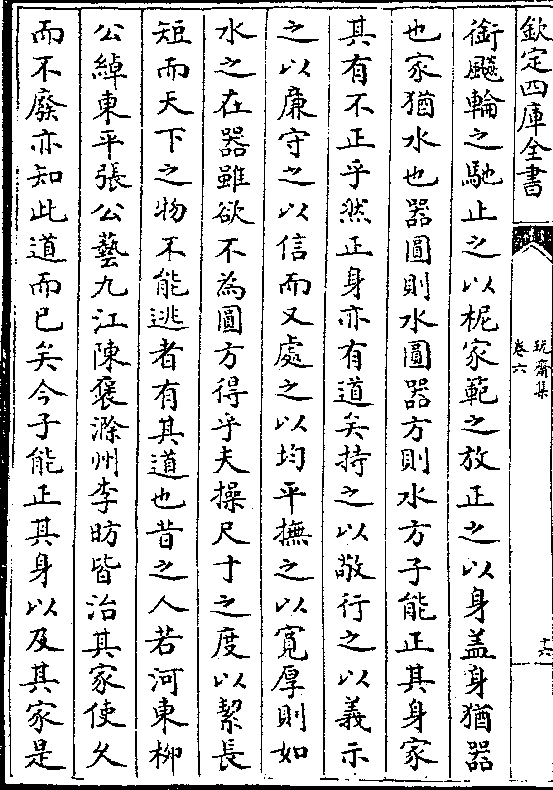 欽定四庫全書
玩齋集
卷六
十六
銜飈輪之馳止之以柅家範之放正之以身盖身猶器
也家猶水也器圓則水圓器方則水方子能正其身家
其有不正乎然正身亦有道矣持之以敬行之以義示
之以亷守之以信而又處之以均平撫之以寛厚則如
水之在器雖欲不為圓方得乎夫操尺寸之度以絜長
短而天下之物不能逃者有其道也昔之人若河東柳
公綽東平張公藝九江陳褒滁州李昉皆治其家使久
而不廢亦知此道而已矣今子能正其身以及其家是